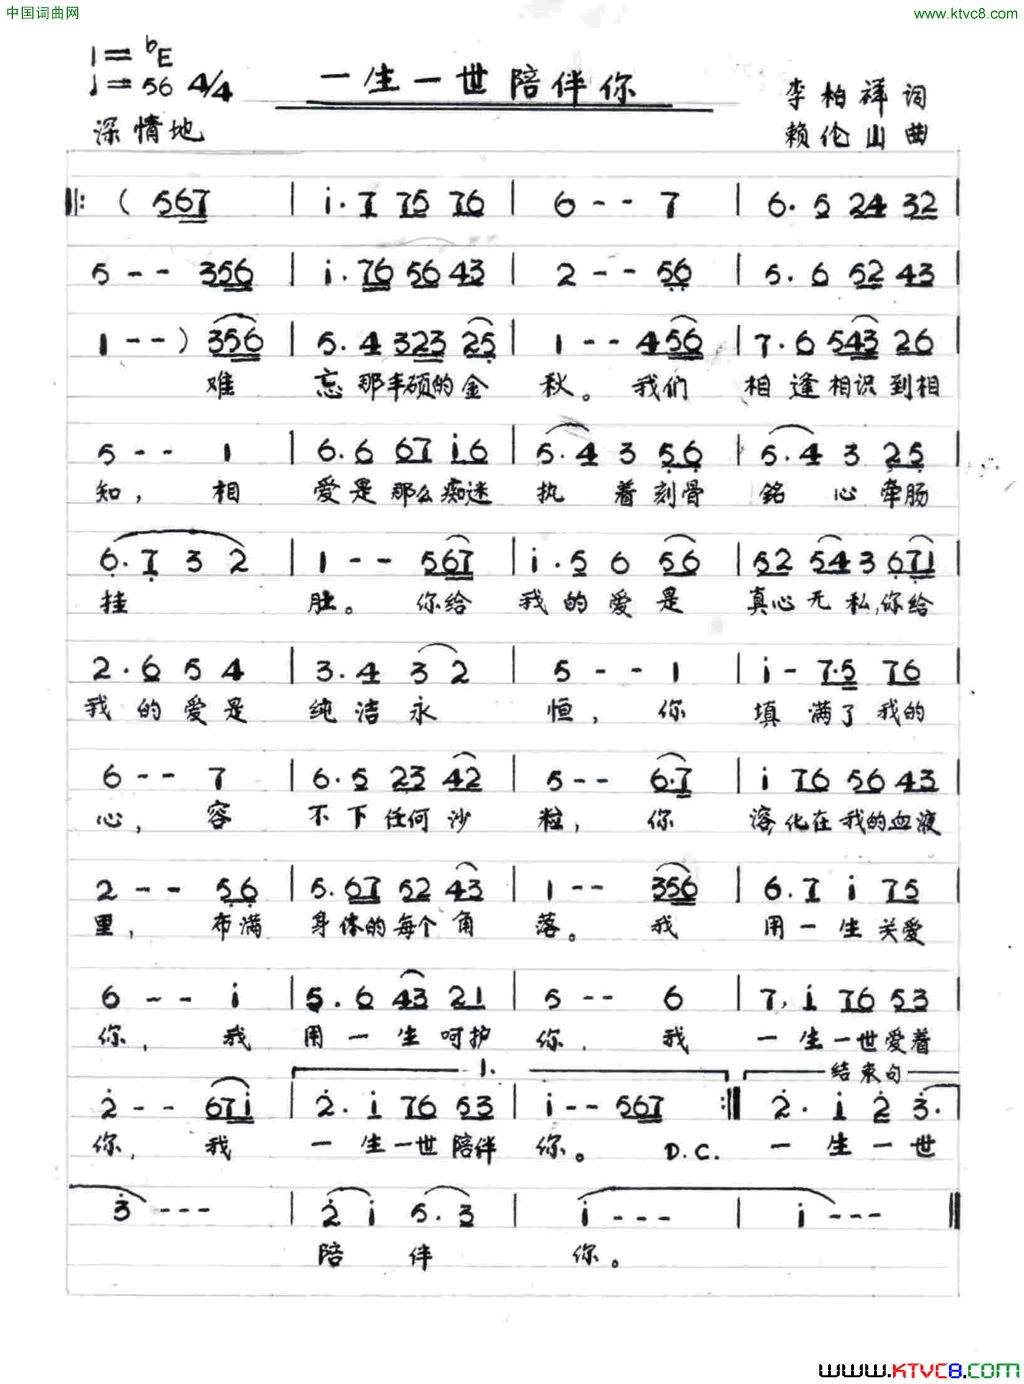 中国词曲网
www.ktvc8.com
1=♭E
♩=56 4/4
一生一世陪伴你
李柏祥 词
深情地
赖伦山 曲
‖: ( 567 | i. 7 75 76 | 6 - - 7 | 6. 5 24 32 |
5 - - 356 | i. 76 56 43 | 2 - - 56 | 5. 6 52 43 |
1 - - ) 356 | 5. 4 323 25 | 1 - - 456 | 7. 6 543 26 |
难 忘那丰硕的金 秋。我们 相逢相识到相
5 - - 1 | 6. 6 67 i6 | 5. 4 3 56 | 5. 4 3 25 |
知，相 爱是那么痴迷 执着刻骨 铭心牵肠
6. 7 3 2 | 1 - - 567 | i. 5 6 56 | 52 543 671 |
挂 肚。你给 我的爱是 真心无私，你给
2. 6 5 4 | 3. 4 3 2 | 5 - - 1 | i - 7.5 76 |
我的爱是 纯洁永 恒，你 填满了我的
6 - - 7 | 6. 5 23 42 | 5 - - 6.7 | i 76 56 43 |
心，容 不下任何沙 粒，你 溶化在我的血液
2 - - 56 | 5. 67 52 43 | 1 - - 356 | 6. 7 i 75 |
里，布满 身体的每个角 落。我 用一生关爱
6 - - i | 5. 6 43 21 | 5 - - 6 | 7. i 76 53 |
你，我 用一生呵护 你，我 一生一世爱着
1. 结束句
2 - - 67i | 2. i 76 53 | i - - 567 :‖ 2. i 2 3. |
你，我 一生一世陪伴 你。D.C. 一生一世
3 - - - | 2 i 5. 3 | i - - - | i - - - ‖
陪伴 你。
www.KTVC8.com